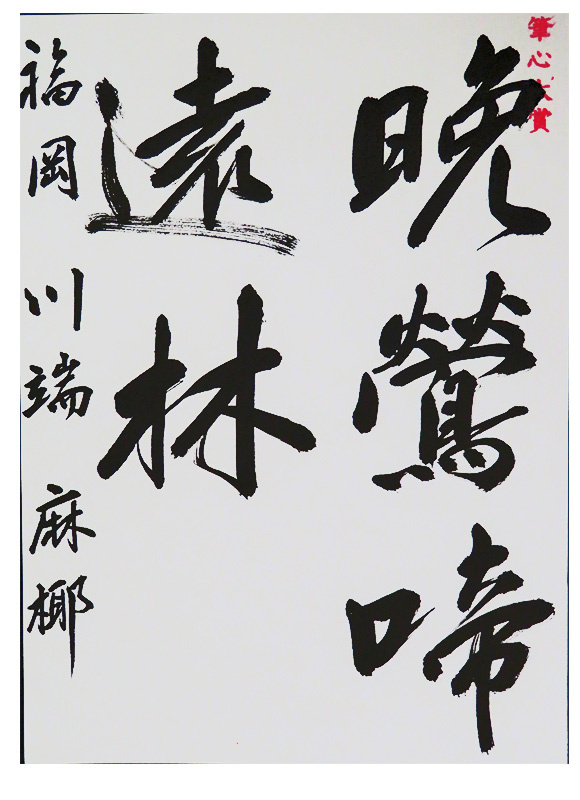 筆心大賞
晩鶯啼
遠林
福岡 川端 麻椰